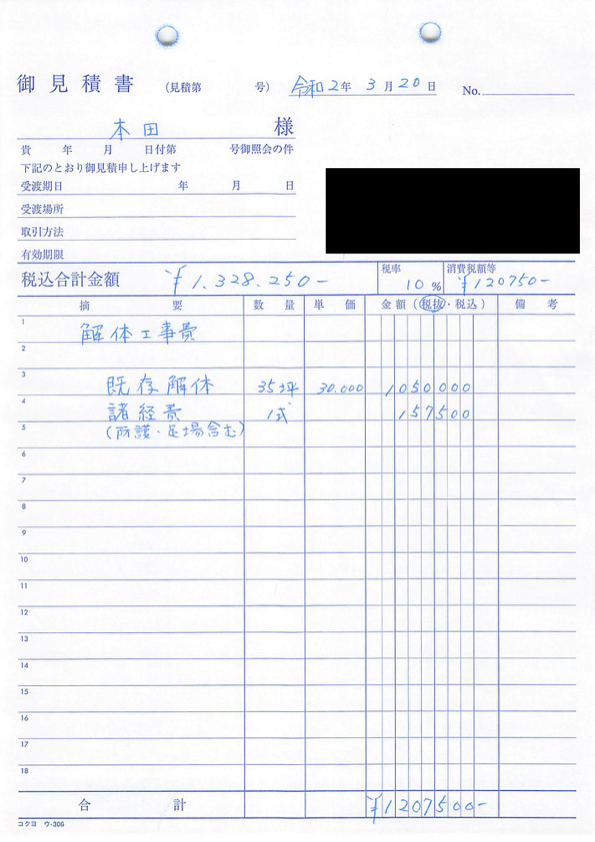 御見積書 (見積第 号) 令和2年 3月20日 No.
本田 様
貴 年 月 日付第 号御照会の件
下記のとおり御見積申し上げます
受渡期日 年 月 日
受渡場所
取引方法
有効期限
税込合計金額 ¥1.328.250- 税率 10% 消費税額等 ¥120750-
摘要 数量 単価 金額(税抜・税込) 備考
1 解体工事費
2
3 既存解体 35坪 30.000 1050000
4 諸経費 1式 157500
5 (防護・足場含む)
6
7
8
9
10
11
12
13
14
15
16
17
18
合計 ¥1207500-
コクヨ ウ-306